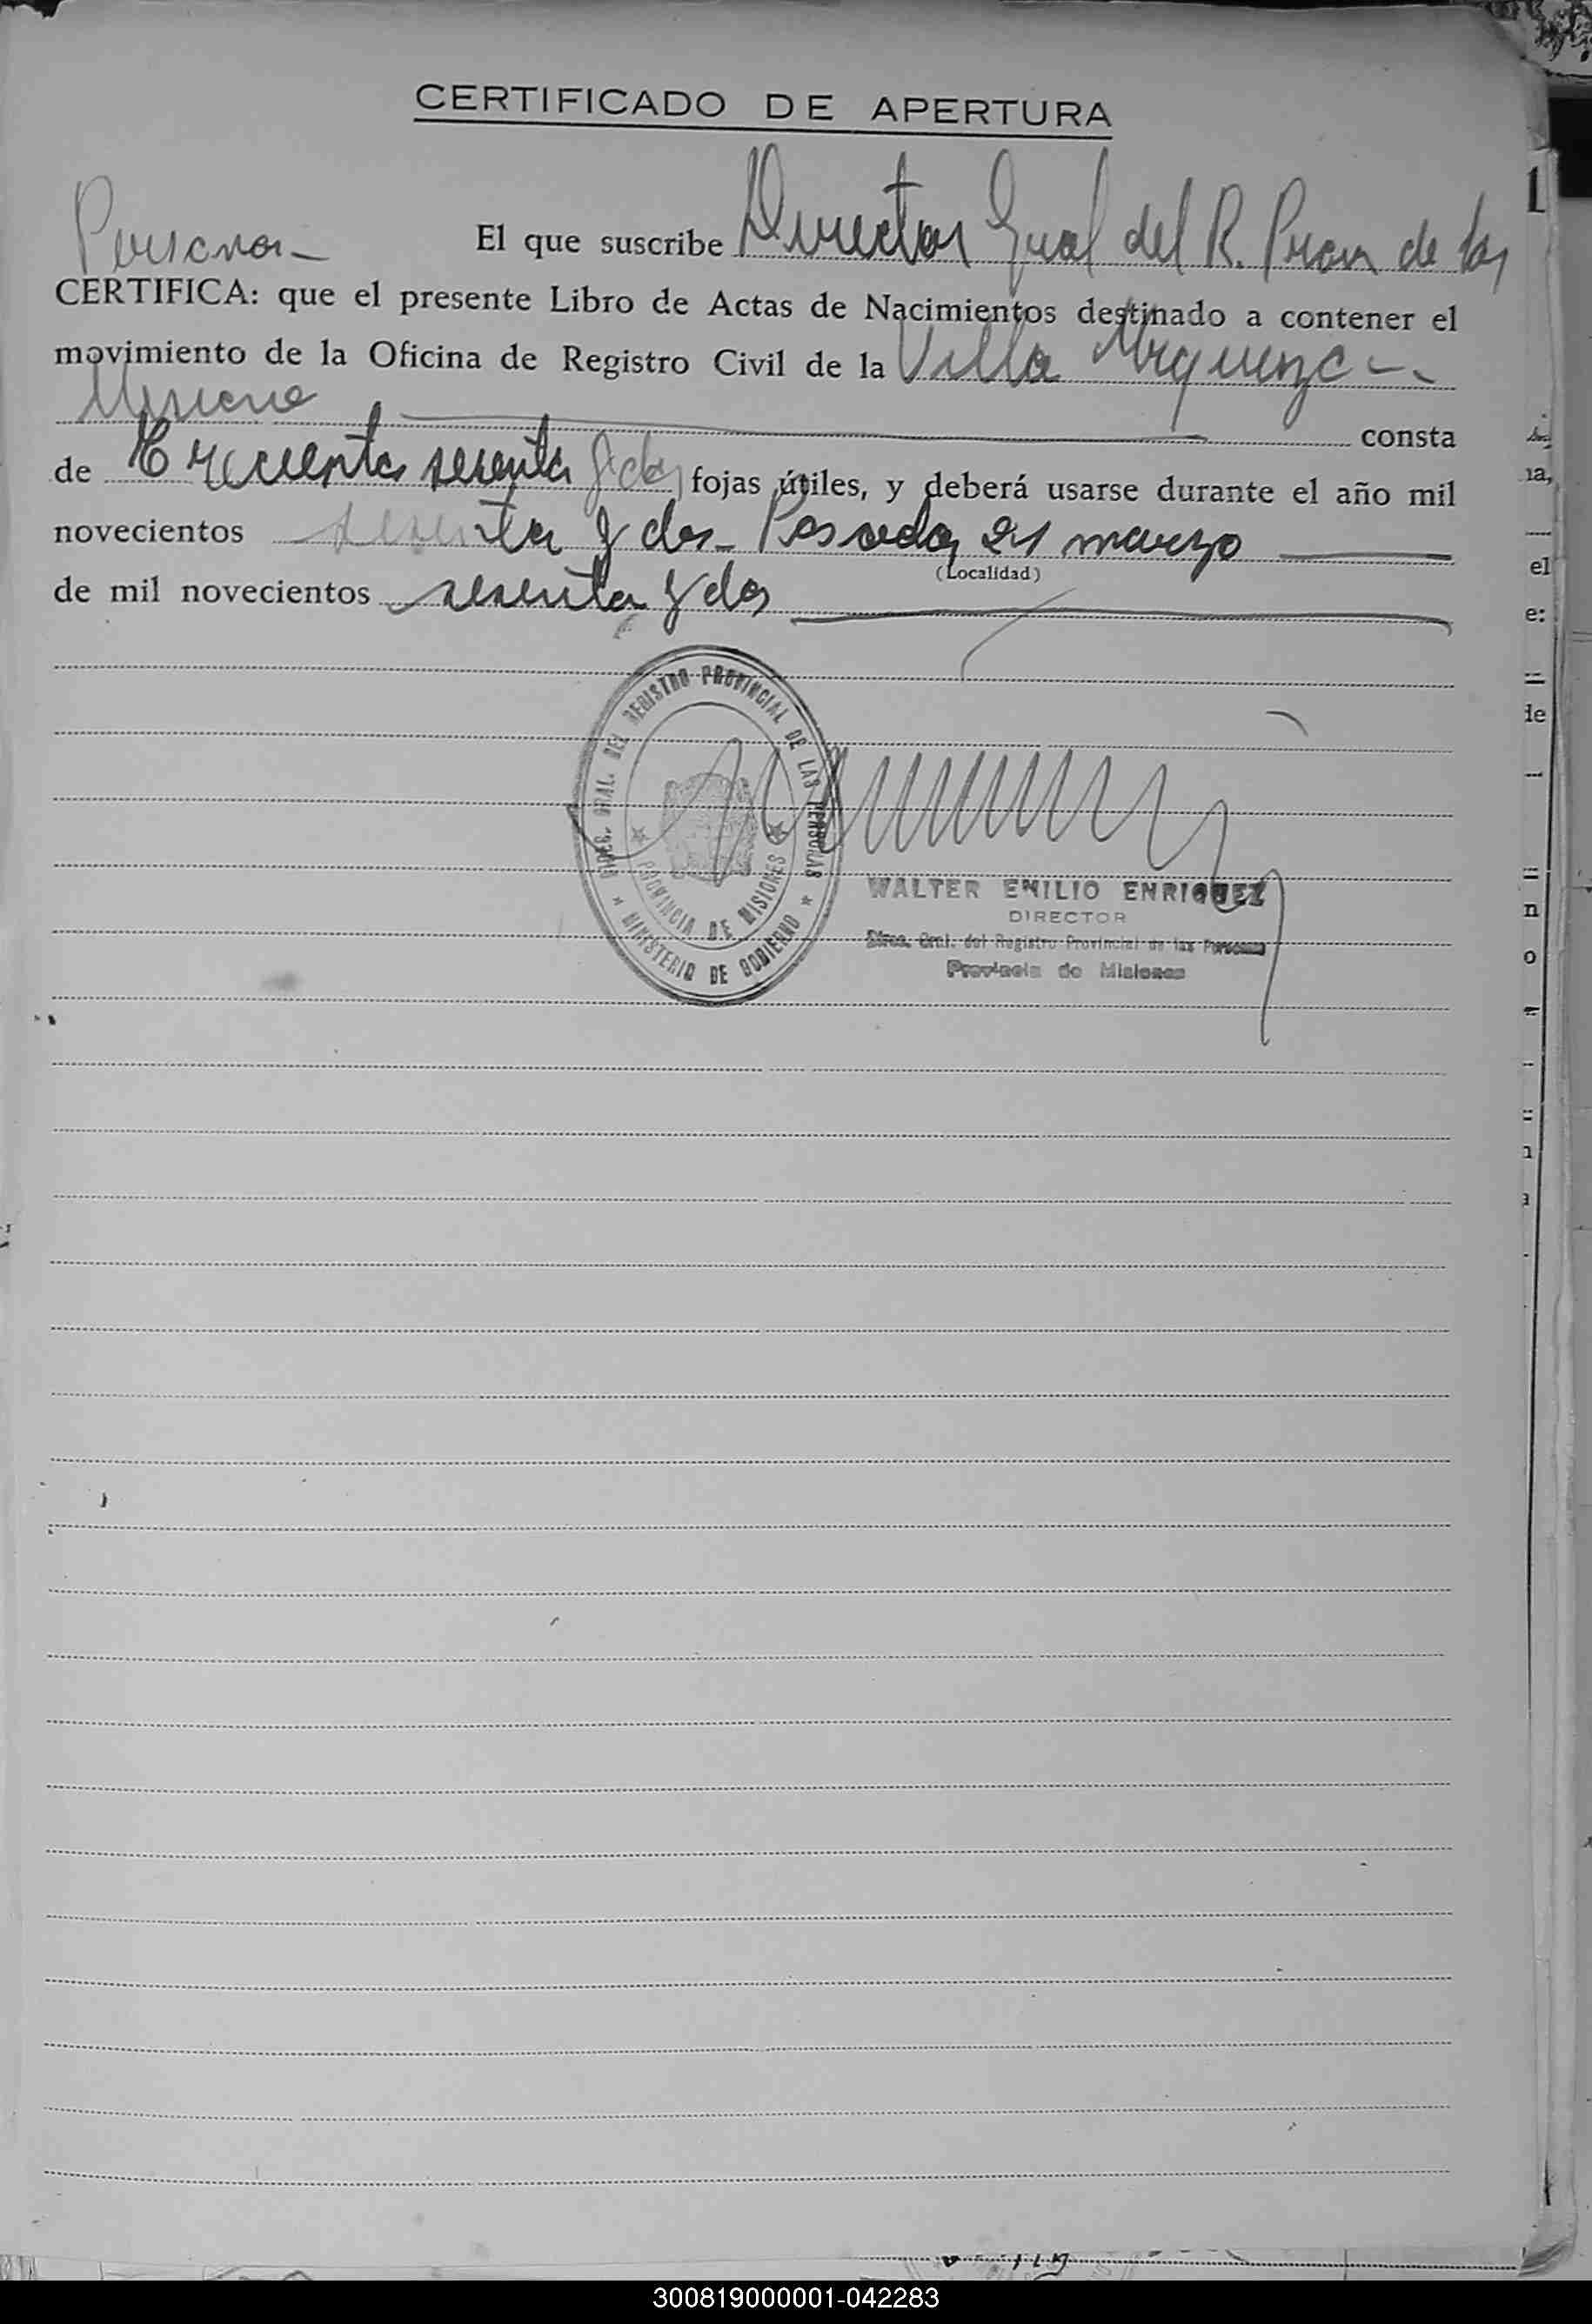 CERTIFICADO DE APERTURA
El que suscribe Director Gral del R. Prov de las
Personas
CERTIFICA: que el presente Libro de Actas de Nacimientos destinado a contener el
movimiento de la Oficina de Registro Civil de la Villa
consta
de Trecientas sesenta y dos fojas útiles, y deberá usarse durante el año mil
novecientos sesenta y dos - Posadas 21 marzo
(Localidad)
de mil novecientos sesenta y dos
DIREC. GRAL. DEL REGISTRO PROVINCIAL DE LAS PERSONAS
PROVINCIA DE MISIONES
MINISTERIO DE GOBIERNO
WALTER EMILIO ENRIQUEZ
DIRECTOR
Direc. Gral. del Registro Provincial de las Personas
Provincia de Misiones
300819000001-042283